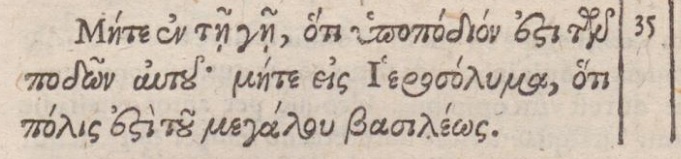 Μήτε ἐν τῇ γῇ, ὅτι ὑποπόδιόν ἐστι τῶν 35
ποδῶν αὐτοῦ· μήτε εἰς Ἱεροσόλυμα, ὅτι
πόλις ἐστὶ τοῦ μεγάλου βασιλέως.